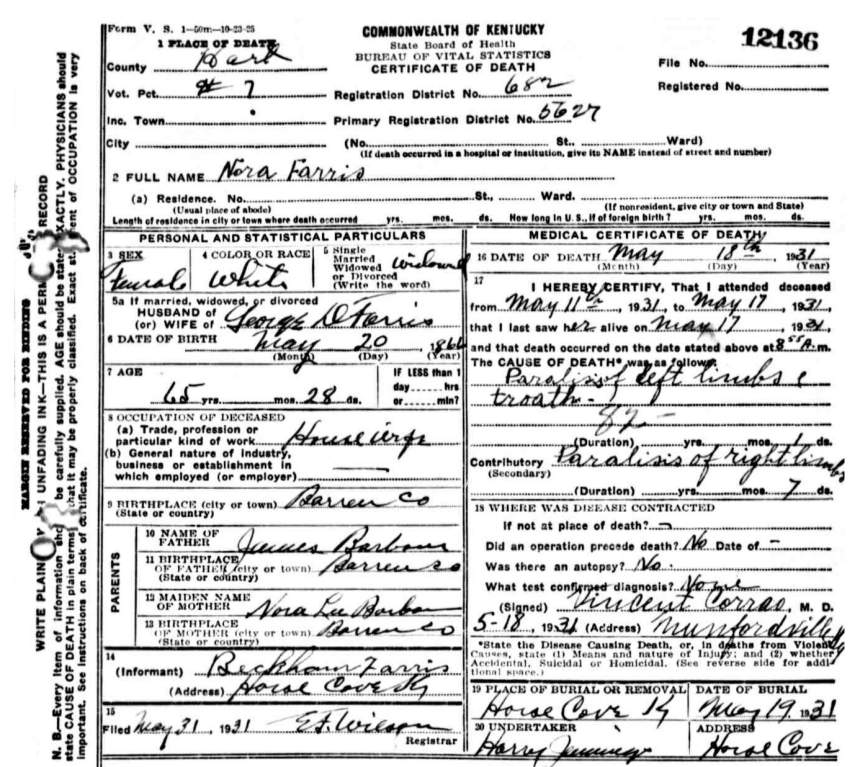 Form V. S. 1—50m—10-23-25
COMMONWEALTH OF KENTUCKY
State Board of Health
BUREAU OF VITAL STATISTICS
CERTIFICATE OF DEATH
12136
1 PLACE OF DEATH
County Hart
File No.
Vot. Pct. # 7
Registration District No. 682
Registered No.
Inc. Town
Primary Registration District No. 5627
City (No. St., Ward)
(If death occurred in a hospital or institution, give its NAME instead of street and number)
2 FULL NAME Nora Farris
(a) Residence. No. St., Ward.
(Usual place of abode) (If nonresident, give city or town and State)
Length of residence in city or town where death occurred yrs. mos. ds. How long in U. S., if of foreign birth? yrs. mos. ds.
PERSONAL AND STATISTICAL PARTICULARS
3 SEX
Female
4 COLOR OR RACE
White
5 Single
Married
Widowed
or Divorced
(Write the word)
Widowed
5a If married, widowed, or divorced
HUSBAND of
(or) WIFE of George D Farris
6 DATE OF BIRTH May 20 1866
(Month) (Day) (Year)
7 AGE
65 yrs. mos. 28 ds.
IF LESS than 1
day hrs
or min?
8 OCCUPATION OF DECEASED
(a) Trade, profession or
particular kind of work Housewife
(b) General nature of industry,
business or establishment in
which employed (or employer)
9 BIRTHPLACE (city or town) Barren Co
(State or country)
PARENTS
10 NAME OF
FATHER James Barbour
11 BIRTHPLACE
OF FATHER (city or town) Barren Co
(State or country)
12 MAIDEN NAME
OF MOTHER Nora Lee Barbour
13 BIRTHPLACE
OF MOTHER (city or town) Barren Co
(State or country)
14
(Informant) Beckham Farris
(Address) Horse Cove Ky
15
Filed May 31, 1931 E. F. Wilson
Registrar
MEDICAL CERTIFICATE OF DEATH
16 DATE OF DEATH May 18th 1931
(Month) (Day) (Year)
17
I HEREBY CERTIFY, That I attended deceased
from May 11th, 1931, to May 17, 1931,
that I last saw her alive on May 17, 1931,
and that death occurred on the date stated above at 8 55 A. m.
The CAUSE OF DEATH* was as follows:
Paralisis of left limbs &
troath -
82 -
(Duration) yrs. mos. 1 ds.
Contributory Paralisis of right limbs
(Secondary)
(Duration) yrs. mos. 7 ds.
18 WHERE WAS DISEASE CONTRACTED
If not at place of death? -
Did an operation precede death? No Date of -
Was there an autopsy? No.
What test confirmed diagnosis? None
(Signed) Vincent Corrao, M. D.
5-18, 1931 (Address) Munfordville Ky
*State the Disease Causing Death, or, in deaths from Violent
Causes, state (1) Means and nature of Injury; and (2) whether
Accidental, Suicidal or Homicidal. (See reverse side for addi-
tional space.)
19 PLACE OF BURIAL OR REMOVAL
Horse Cove Ky
DATE OF BURIAL
May 19, 1931
20 UNDERTAKER
Harry Jennings
ADDRESS
Horse Cove
MARGIN RESERVED FOR BINDING
WRITE PLAINLY UNFADING INK—THIS IS A PERM RECORD
N. B.—Every item of information sho be carefully supplied. AGE should be state EXACTLY. PHYSICIANS should
state CAUSE OF DEATH in plain terms that it may be properly classified. Exact st ent of OCCUPATION is very
important. See instructions on back of certificate.